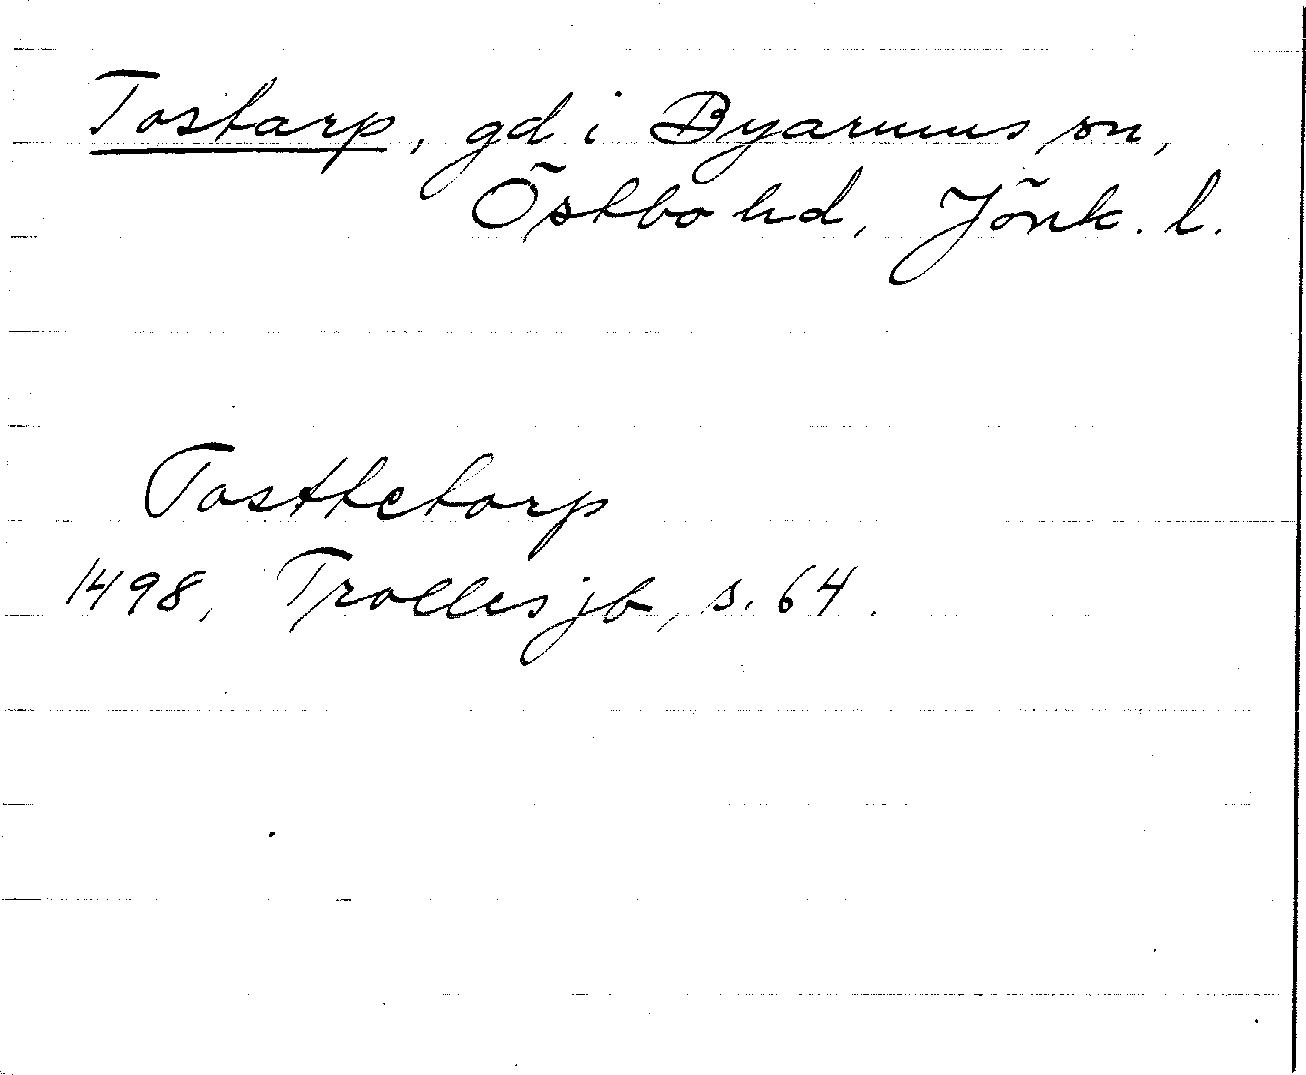 Tostarp, gd i Byarums sn,
Östbo hd, Jönk. l.
Tosttetorp
1498, Trolles jb, s. 64.